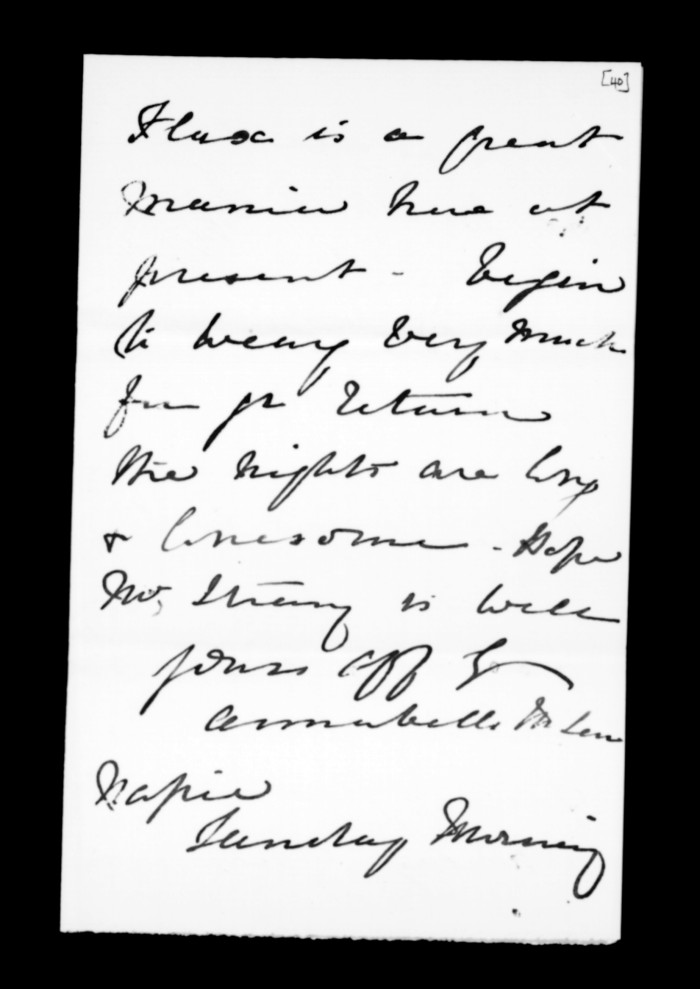 [40]
Flax is a great
Mania here at
present - begin
to weary very much
for yr return
The nights are long
& lonesome - Hope
Mr. Strang is well
yours aff ly
Annabella McLean
Napier
Sunday Morning